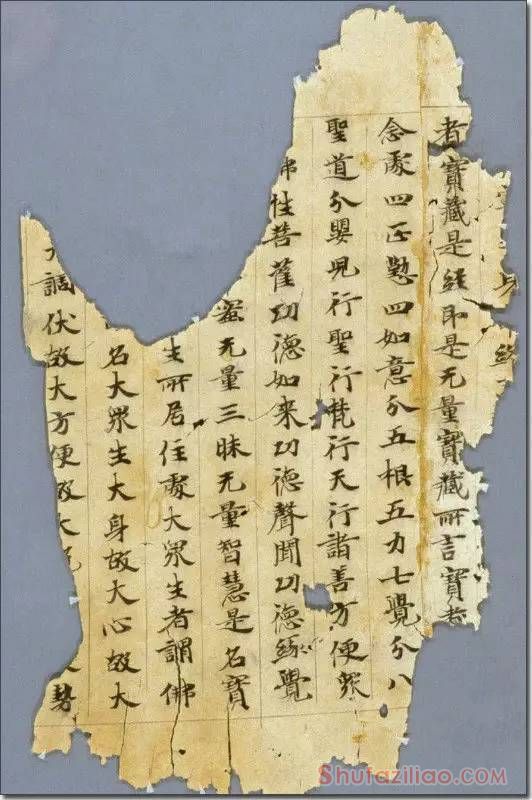 者寶藏是經即是无量寶藏所言寶者
念處四正懃四如意分五根五力七覺分八
聖道分嬰兒行聖行梵行天行諸善方便衆
佛性菩薩功德如来功德聲聞功德縁覺
蜜无量三昧无量智慧是名寶
生所居住處大衆生者謂佛
名大衆生大身故大心故大
調伏故大方便故大勢
Shufaziliao.COM